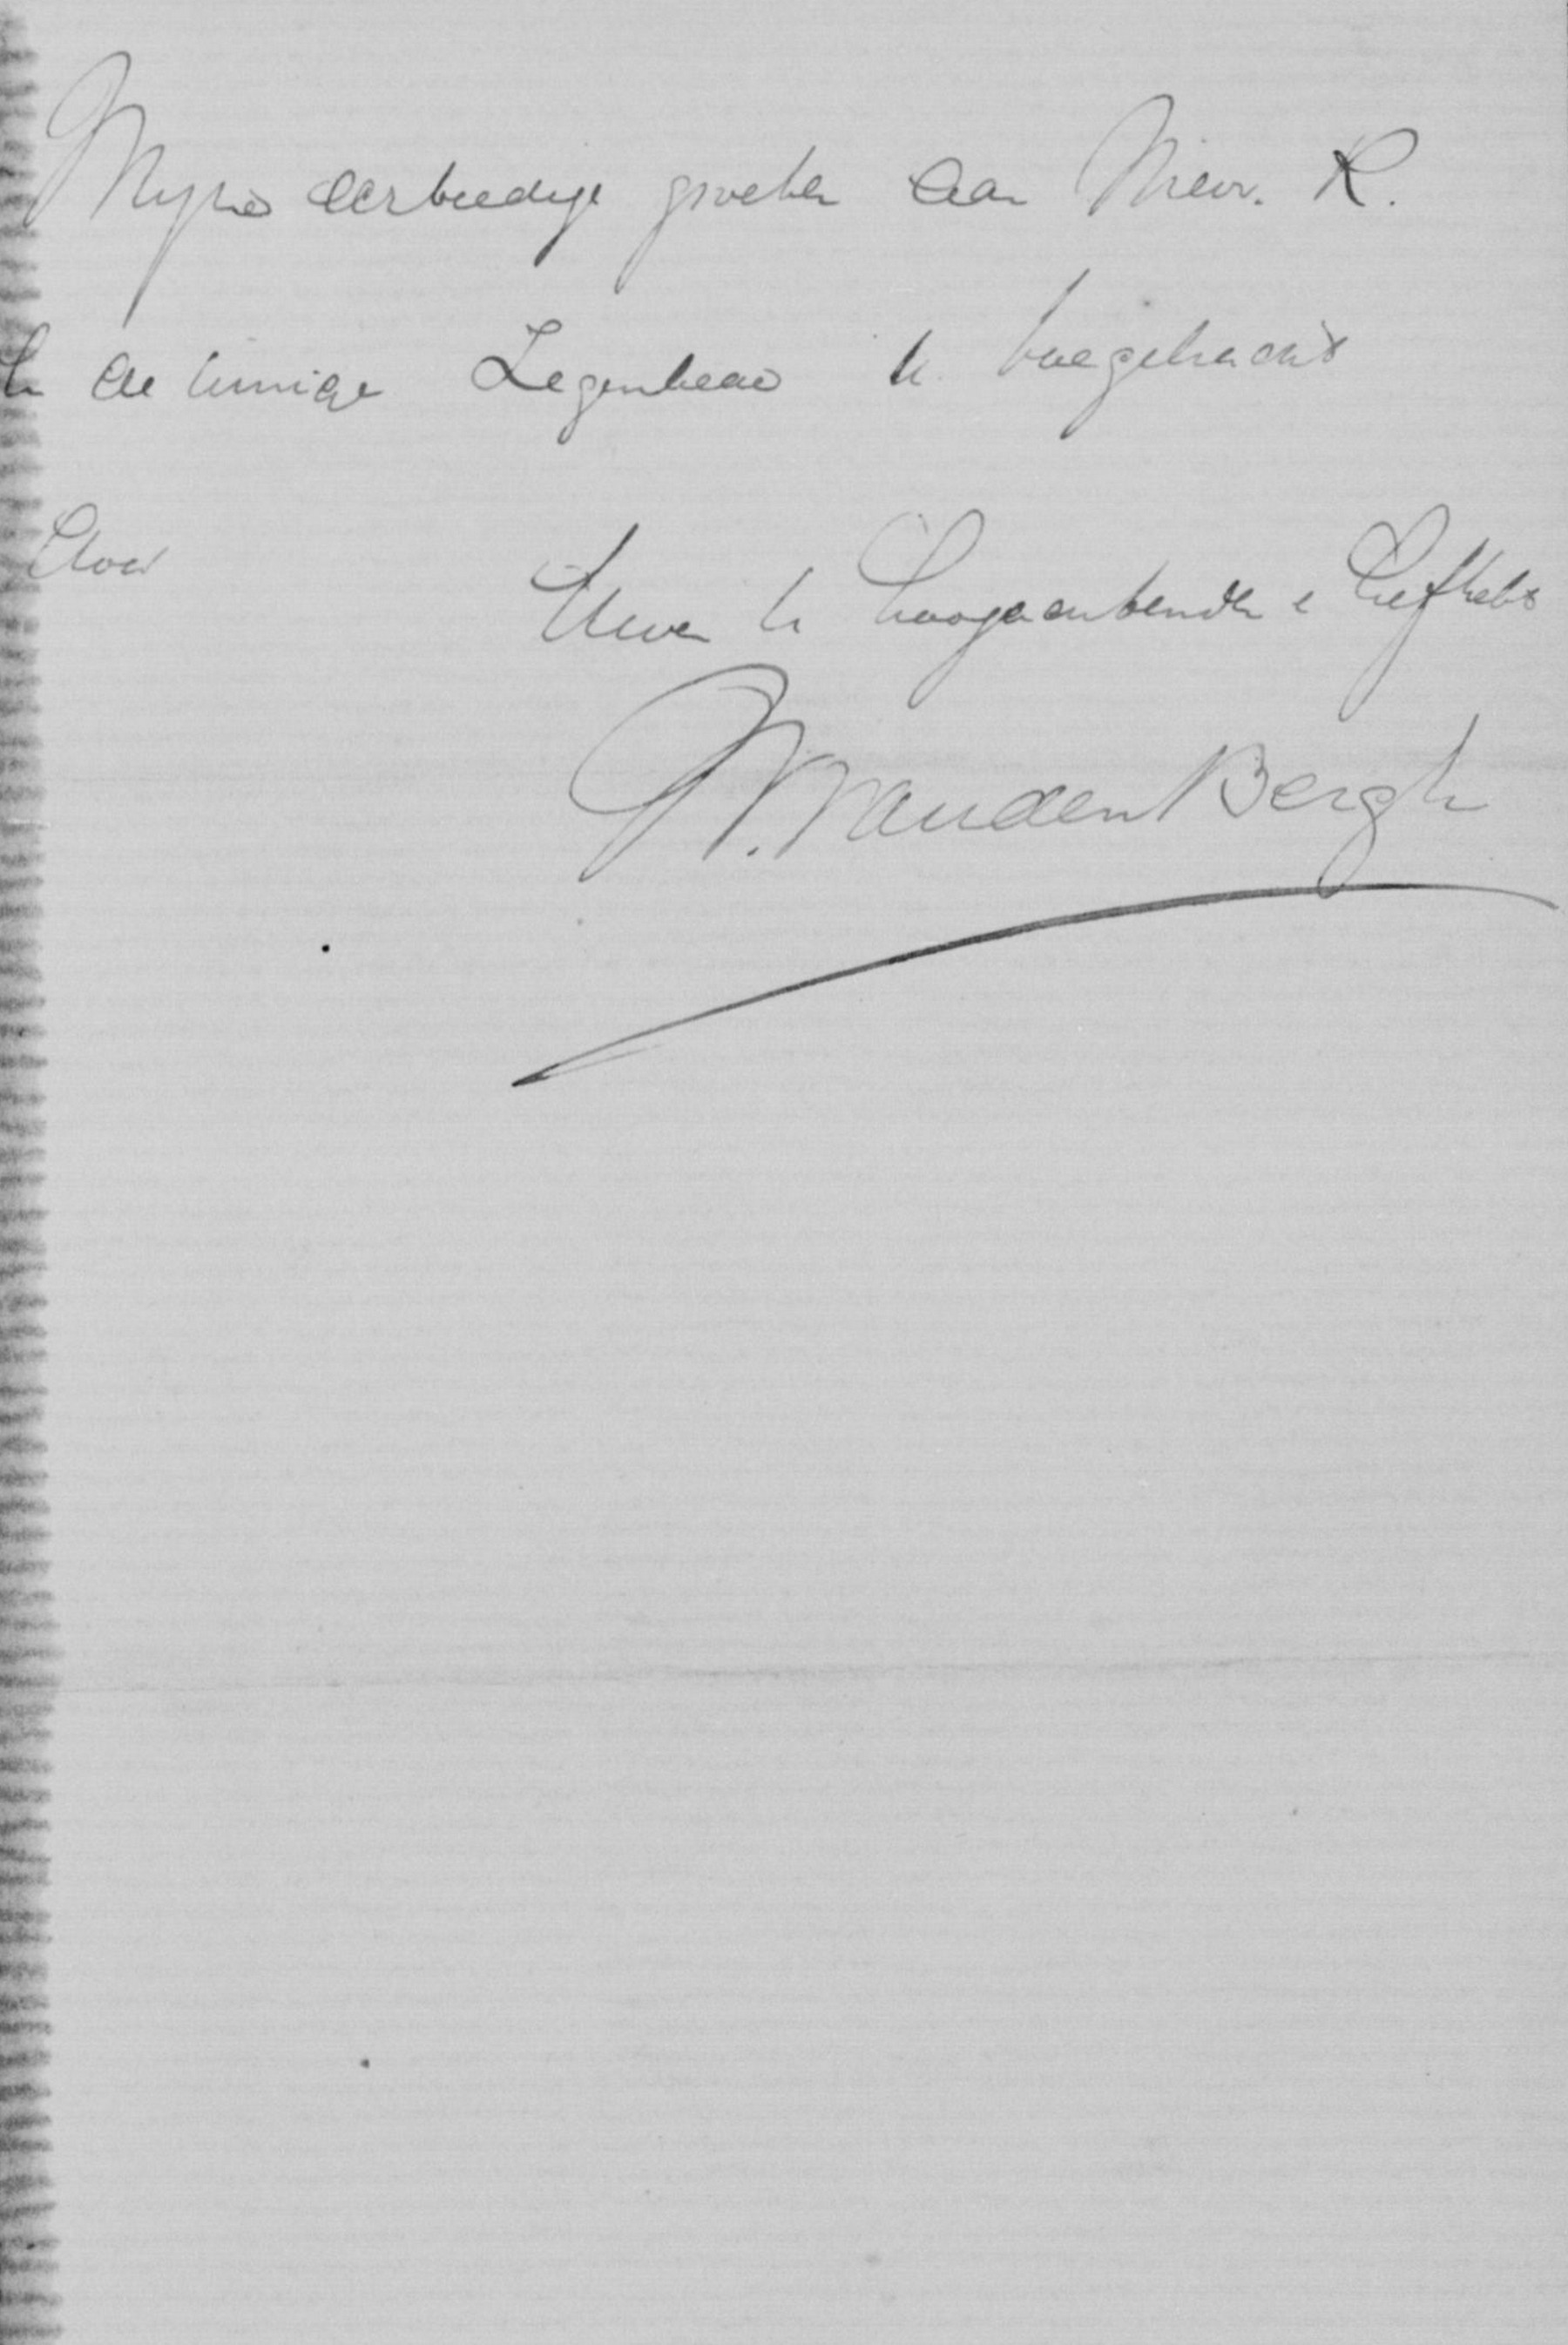 Myne eerbiedige groeten aan Mevr. R.
en de innige Zegenbede U toegebracht
door
Uwen U hoogachtende & liefheb
N. van den Bergh